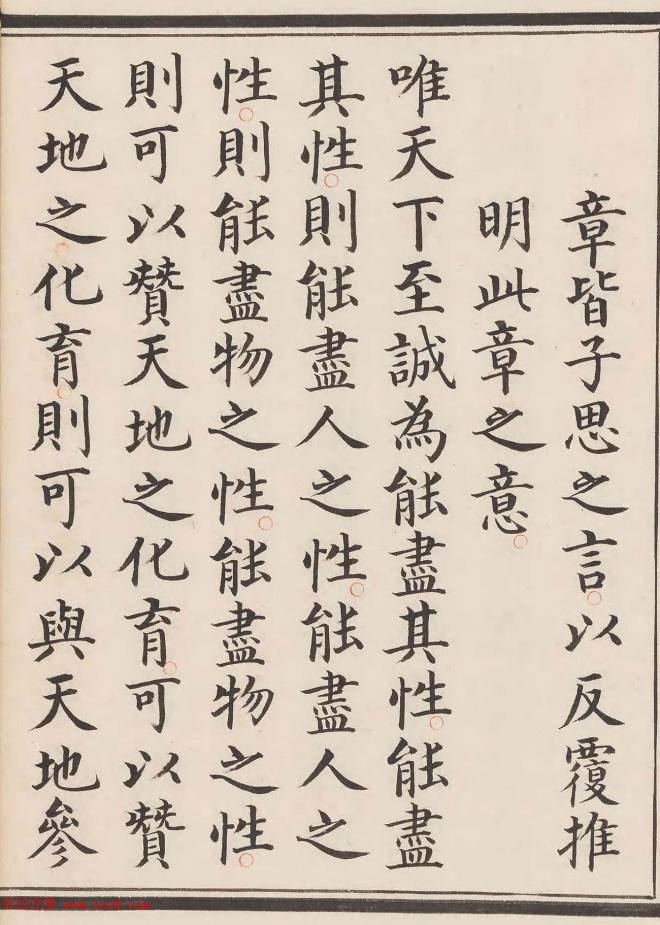 章皆子思之言以反覆推
明此章之意
唯天下至誠為能盡其性能盡
其性則能盡人之性能盡人之
性則能盡物之性能盡物之性
則可以贊天地之化育可以贊
天地之化育則可以與天地參